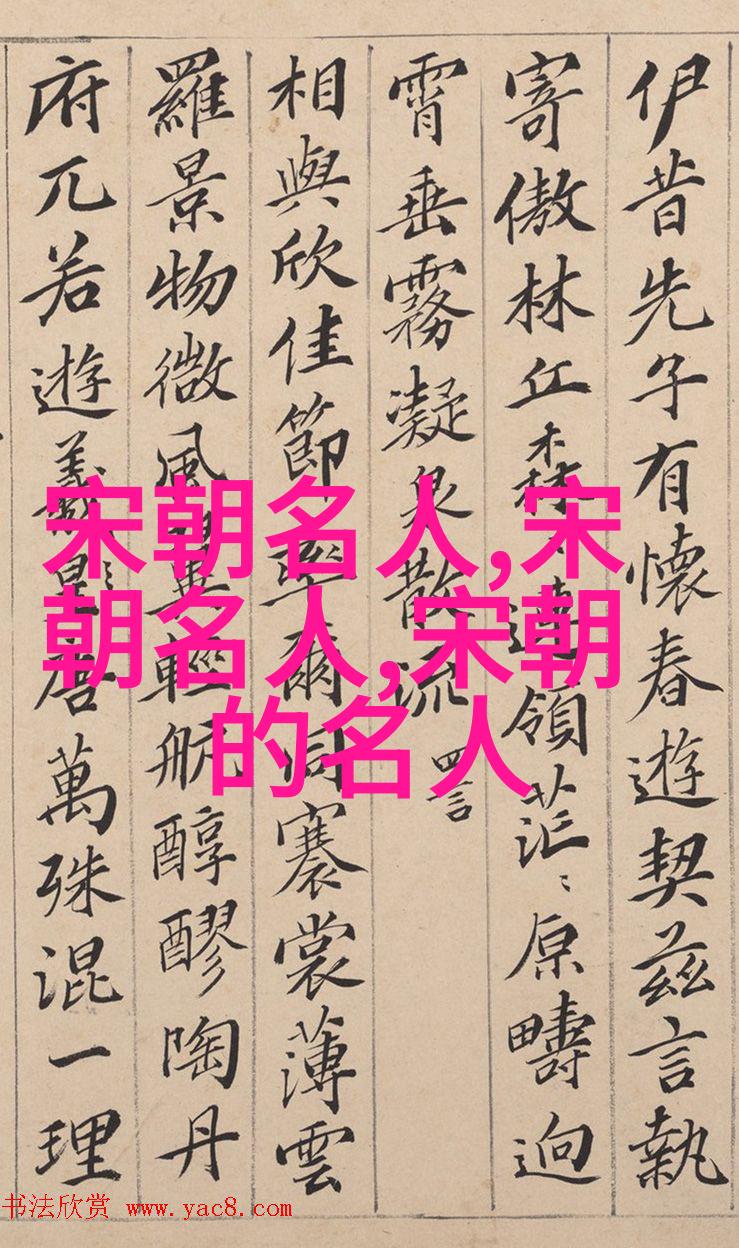 伊昔先子有懷春遊契茲言執
寄傲林丘森〻連領茫〻原疇迥
霄垂霧凝泉散流 四言
相與欣佳節率爾同褰裳薄雲
羅景物微風翼輕航醇醪陶丹
府兀若遊羲皇唐萬殊混一理
宋朝名人,宋
朝名人,宋朝
的名人
书法欣赏 www.yac8.com